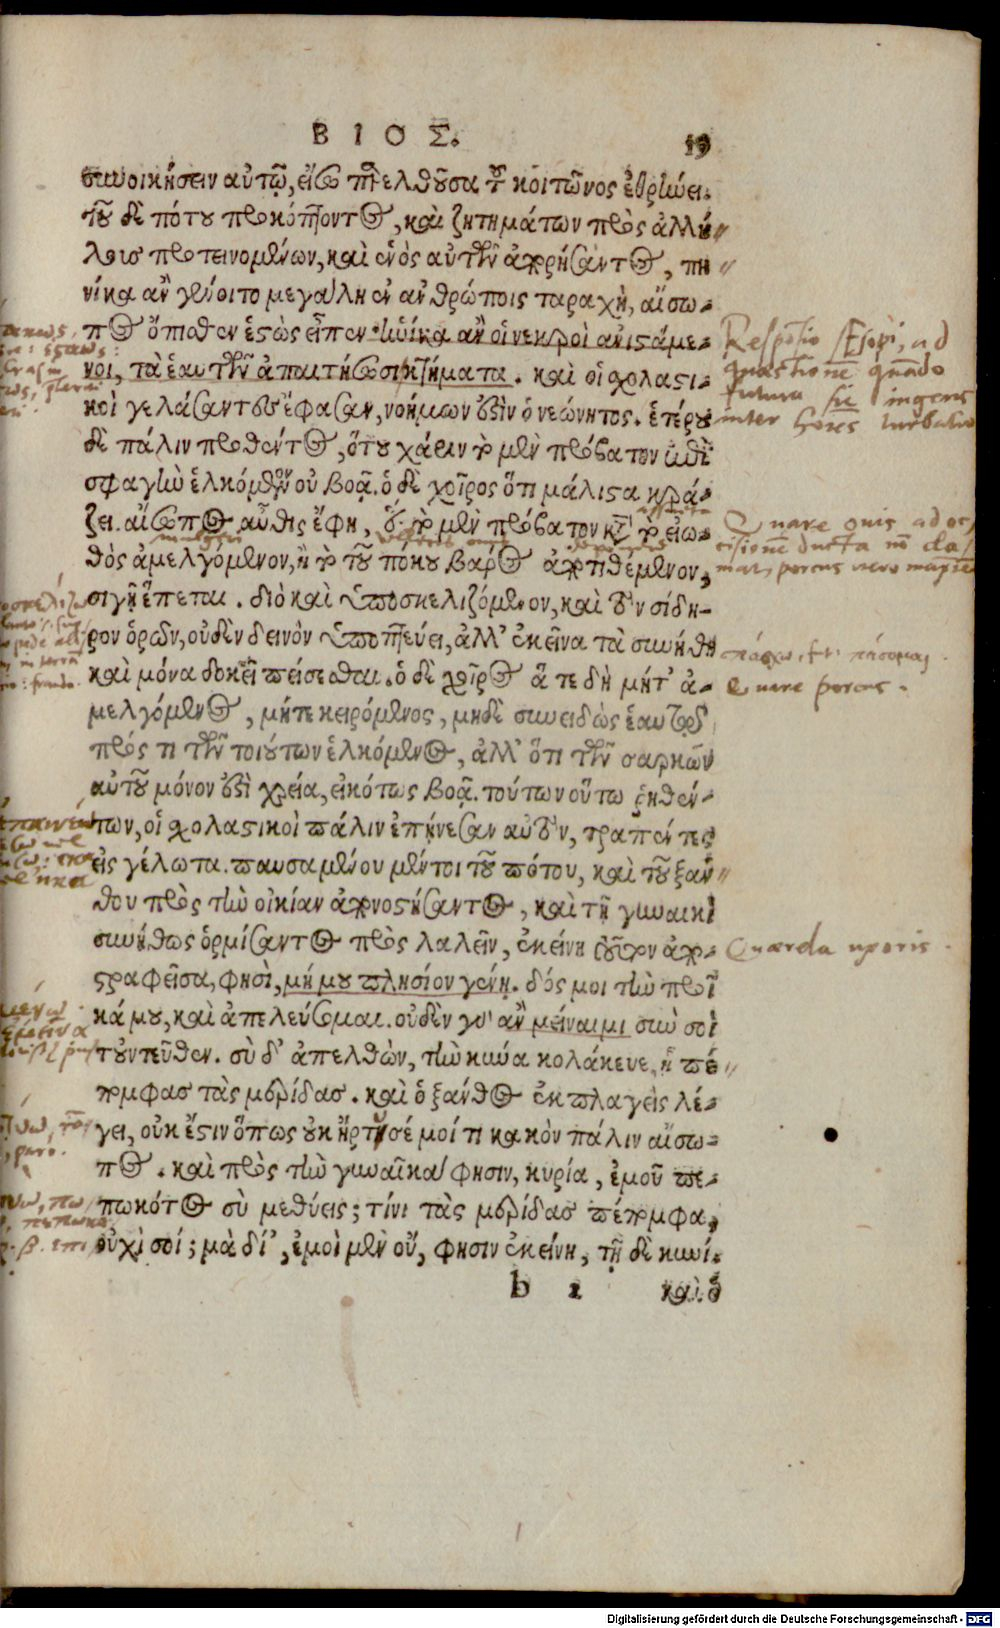 ΒΙΟΣ. 19
συνοικήσειν αὐτῷ, εἴσω παρελθοῦσα τοῦ κοιτῶνος ἐθρήνει.
τοῦ δὲ πότου προκόπτοντος, καὶ ζητημάτων πρὸς ἀλλή-
λοις προτεινομένων, καὶ ἑνὸς αὐτῶν ἀπορήσαντος, πη-
νίκα ἂν γένοιτο μεγάλη ἐν ἀνθρώποις ταραχὴ, αἴσω-
πος ὄπιθεν ἑστὼς εἶπεν· ἡνίκα ἂν οἱ νεκροὶ ἀνιστάμε-
νοι, τὰ ἑαυτῶν ἀπαιτήσωσι κτήματα. καὶ οἱ σχολαστι-
κοὶ γελάσαντες ἔφασαν, νοήμων ἐστὶν ὁ νεώνητος. ἑτέρου
δὲ πάλιν προθέντος, ὅτου χάριν τὸ μὲν πρόβατον ἐπὶ
σφαγὴν ἑλκόμενον οὐ βοᾷ. ὁ δὲ χοῖρος ὅτι μάλιστα κρά-
ζει. αἴσωπος αὖθις ἔφη, ὅτι τὸ μὲν πρόβατον κατὰ τὸ εἰω-
θὸς ἀμελγόμενον, ἢ τὸ τοῦ πόκου βάρος ἀποτιθέμενον,
σιγῇ ἕπεται. διὸ καὶ ὑποσκελιζόμενον, καὶ τὸν σίδη-
ρον ὁρῶν, οὐδὲν δεινὸν ὑποπτεύει, ἀλλ' ἐκεῖνα τὰ συνήθη
καὶ μόνα δοκεῖ πείσεσθαι. ὁ δὲ χοῖρος ἅ τε δὴ μήτ' ἀ-
μελγόμενος, μήτε κειρόμενος, μηδὲ συνειδὼς ἑαυτὸν
πρός τι τῶν τοιούτων ἑλκόμενος, ἀλλ' ὅτι τῶν σαρκῶν
αὐτοῦ μόνον ἐστὶ χρεία, εἰκότως βοᾷ. τούτων οὕτω ῥηθέν-
των, οἱ σχολαστικοὶ πάλιν ἐπῄνεσαν αὐτὸν, τραπέντες
εἰς γέλωτα. παυσαμένου μέντοι τοῦ πότου, καὶ τοῦ ξάν-
θου πρὸς τὴν οἰκίαν ἀπονοστήσαντος, καὶ τῇ γυναικὶ
συνήθως ὁρμήσαντος πρὸς λαλεῖν, ἐκείνη τοῦτον ἀπο-
στραφεῖσα, φησὶ, μή μου πλησίον γένῃ. δός μοι τὴν προῖ-
κά μου, καὶ ἀπελεύσομαι. οὐδὲν γὰρ ἂν μείναιμι σὺν σοὶ
τοὐντεῦθεν. σὺ δ' ἀπελθὼν, τὴν κύνα κολάκευε, ᾗ πέ-
πομφας τὰς μερίδας. καὶ ὁ ξάνθος ἐκπλαγεὶς λέ-
γει, οὐκ ἔστιν ὅπως οὐκ ἤρτυσέ μοί τι κακὸν πάλιν αἴσω-
πος. καὶ πρὸς τὴν γυναῖκα φησιν, κυρία, ἐμοῦ πε-
πωκότος σὺ μεθύεις; τίνι τὰς μερίδας πέπομφα,
οὐχὶ σοί; μὰ δί', ἐμοὶ μὲν οὔ, φησιν ἐκείνη, τῇ δὲ κυνί.
b 2 καὶ ὁ
Respo͂sio Æsopi, ad
quæstione͂ qua͂do
futura sit ingens
inter ho͞i͞es turbatio
Quare ovis ad oc-
cisione͂ ducta no͂ cla-
mat, porcus vero maxime
πάσχω, f. πείσομαι.
Quare porcus.
Querela uxoris.
Digitalisierung gefördert durch die Deutsche Forschungsgemeinschaft - DFG